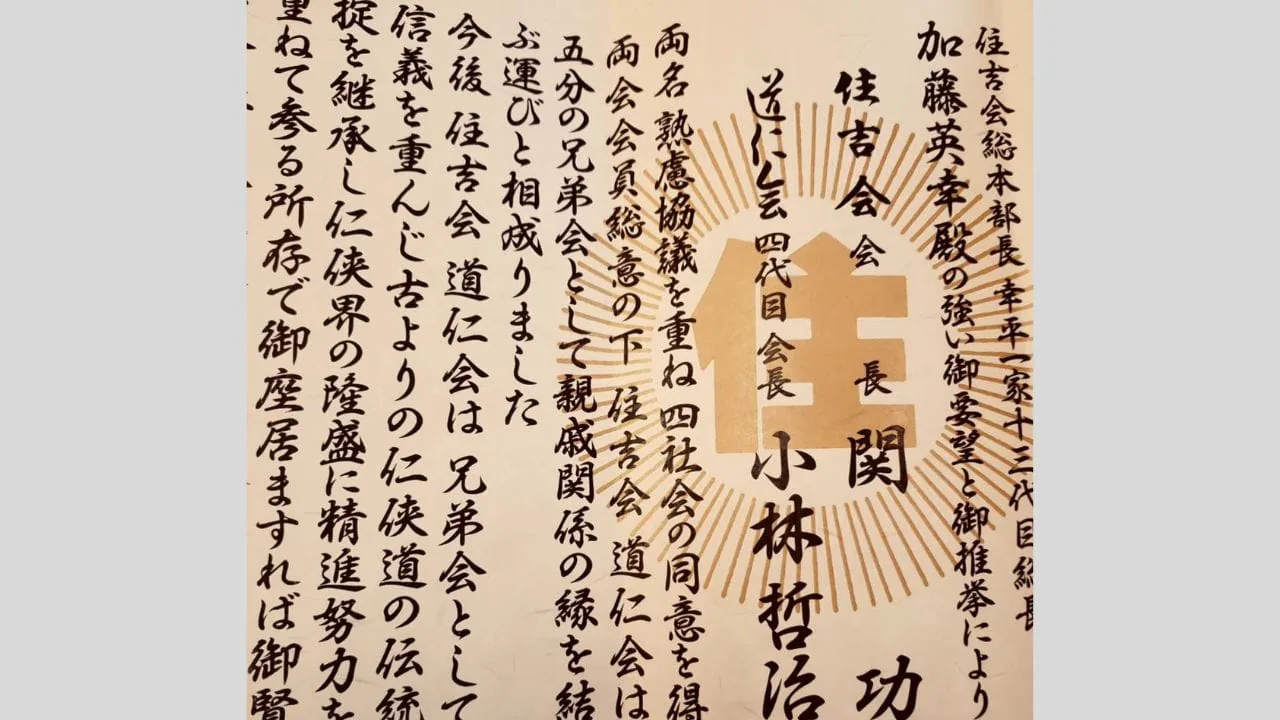 住吉会総本部長 幸平一家十三代目総長
加藤英幸殿の強い御要望と御推挙により
住吉会 会長 関 功
道仁会 四代目 会長 小林哲治
両名熟慮協議を重ね 四社会の同意を得
両会会員総意の下 住吉会 道仁会は
五分の兄弟会として親戚関係の縁を結
ぶ運びと相成りました
今後 住吉会 道仁会は 兄弟会として
信義を重んじ古よりの仁侠道の伝統
掟を継承し仁侠界の隆盛に精進努力を
重ねて参る所存で御座居ますれば御賢
住